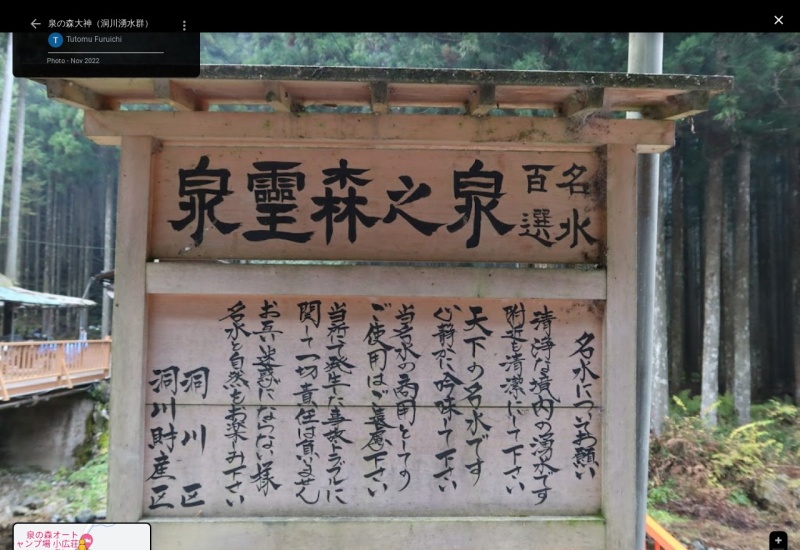 泉の森大神（洞川湧水群）
Tutomu Furuichi
Photo - Nov 2022
名水
百選
泉之森霊泉
名水についてお願い
清浄な境内の湧水です
附近も清潔にして下さい
天下の名水です
心静かに吟味して下さい
当名水の商用としての
ご使用はご遠慮下さい
当所で発生した事故トラブルに
関して一切責任は負いません
お互い迷惑にならない様
名水と自然をお楽しみ下さい
洞川区
洞川財産区
泉の森オート
ャンプ場 小広荘